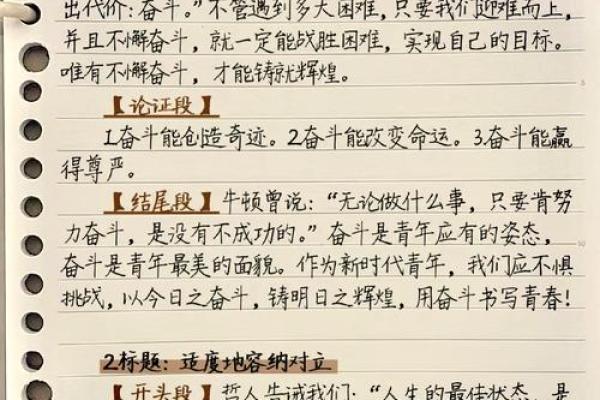 出代价:奋斗。”不管遇到多大困难,只要我们迎难而上,
并且不懈奋斗,就一定能战胜困难,实现自己的目标。
唯有不懈奋斗,才能铸就辉煌。
【论证段】
1.奋斗能创造奇迹。2.奋斗能改变命运。3.奋斗能赢
得尊严。
【结尾段】牛顿曾说:“无论做什么事,只要肯努
力奋斗,是没有不成功的。”奋斗是青年应有的姿态,
奋斗是青年最美的面貌。作为新时代青年,我们应不惧
挑战,以今日之奋斗,铸明日之辉煌,用奋斗书写青春!
2.标题:适度地容纳对立
【开头段】哲人告诫我们:“人生的最佳状态,是